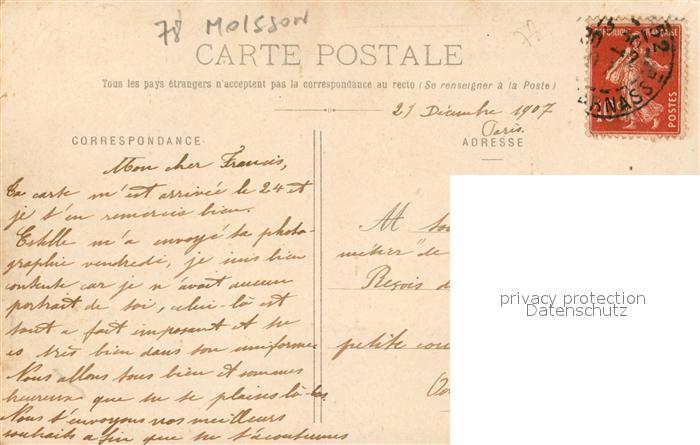 78 MOISSON
CARTE POSTALE
Tous les pays étrangers n'acceptent pas la correspondance au recto (Se renseigner à la Poste)
21 Décembre 1907
Paris.
CORRESPONDANCE
ADRESSE
Mon cher Francis,
Ta carte m'est arrivée le 24 et
je t'en remercie bien.
Estelle m'a envoyé ta photo-
graphie vendredi, je suis bien
contente car je n'avait aucun
portrait de toi, celui-là est
tout a fait imposant et tu
es très bien dans ton uniforme
Nous allons tous bien et sommes
heureux que tu te plaises là-bas
Nous t'envoyons nos meilleurs
souhaits afin que tu t'acoutumes
M
métier" de
Reçois d
petite cou
privacy protection
Datenschutz